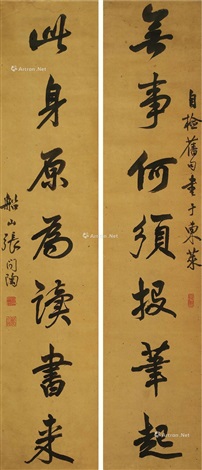 無事何須投筆起
自檢舊句書于東萊
此身原為讀書来
船山張問陶